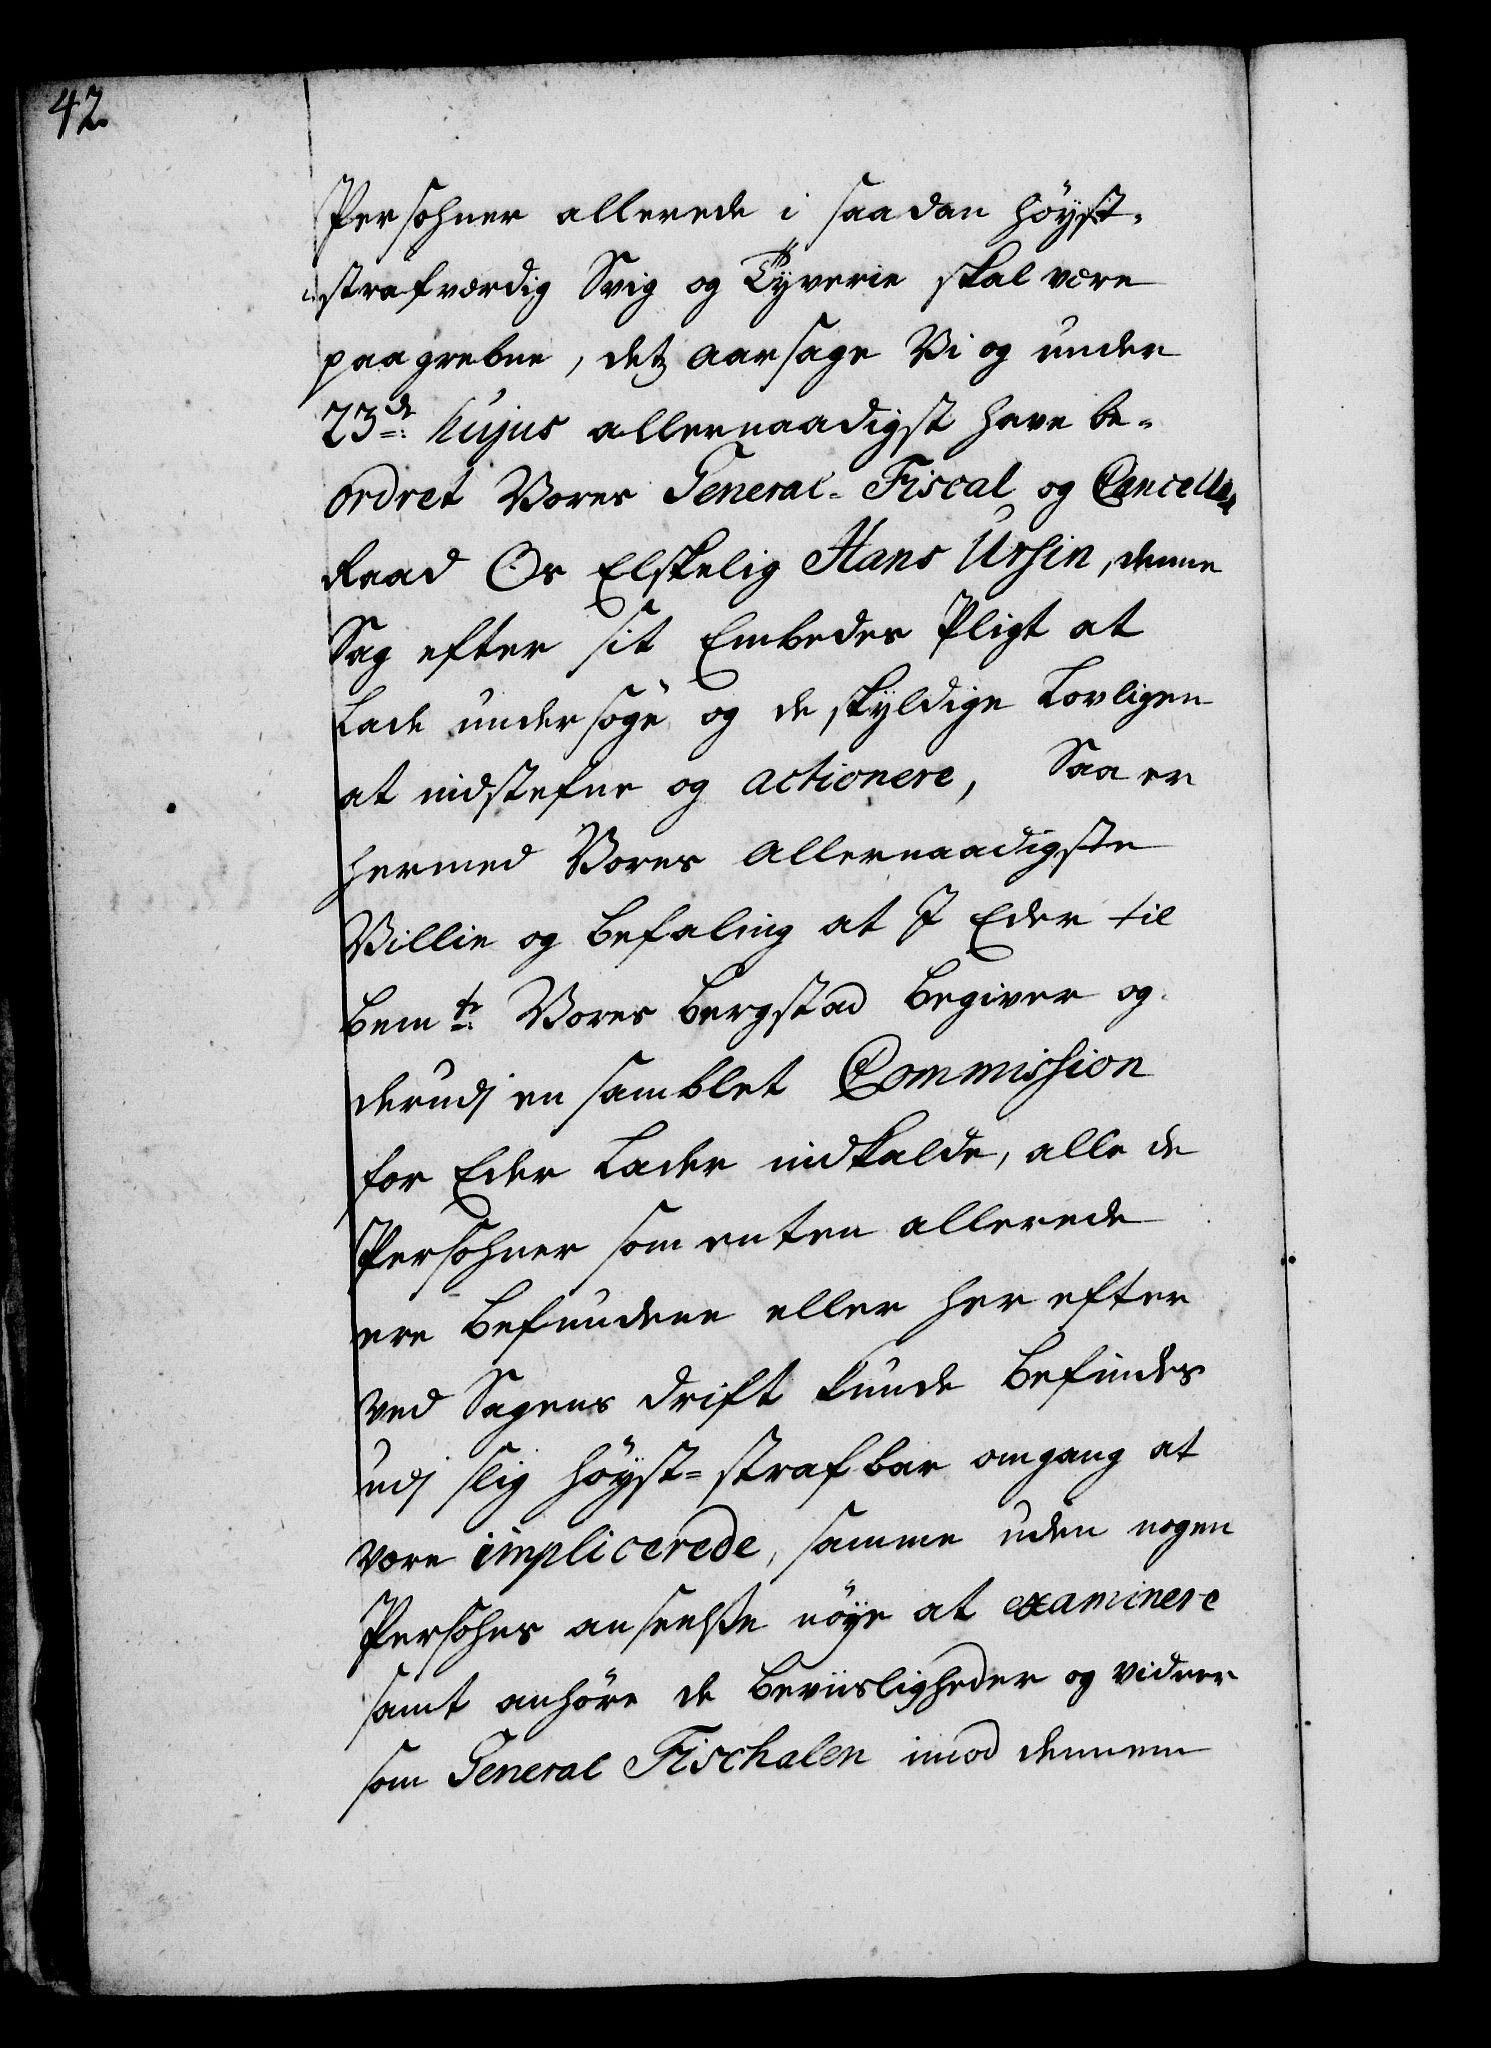 42.
Persohner allerede i saadan höÿst-
strafværdig Svig og Tÿverie skal være
paagrebne, dets aarsage Vi og under
23de hujus allernaadigst have be-
ordret Vores General-Fiscal og Cancellie
Raad Os Elskelig Hans Ursin, denne
Sag efter sit Embedes Pligt at
Lade undersöge og de skÿldige Lovligen
at indstefne og actionere, Saa er
hermed Vores Allernaadigste
Villie og Befaling at I Eder til
bemte Vores Bergstad begiver og
derudj en samblet Commission
for Eder Lader indkalde, alle de
Persohner som enten allerede
ere Befundene eller her efter
ved Sagens drift kunde Befindes
udj slig höÿst-strafbar omgang at
være implicerede, samme uden nogen
Persohns anseelse nöÿe at examinere
samt anhöre de Beviisligheder og videre
som General Fischalen imod dennem